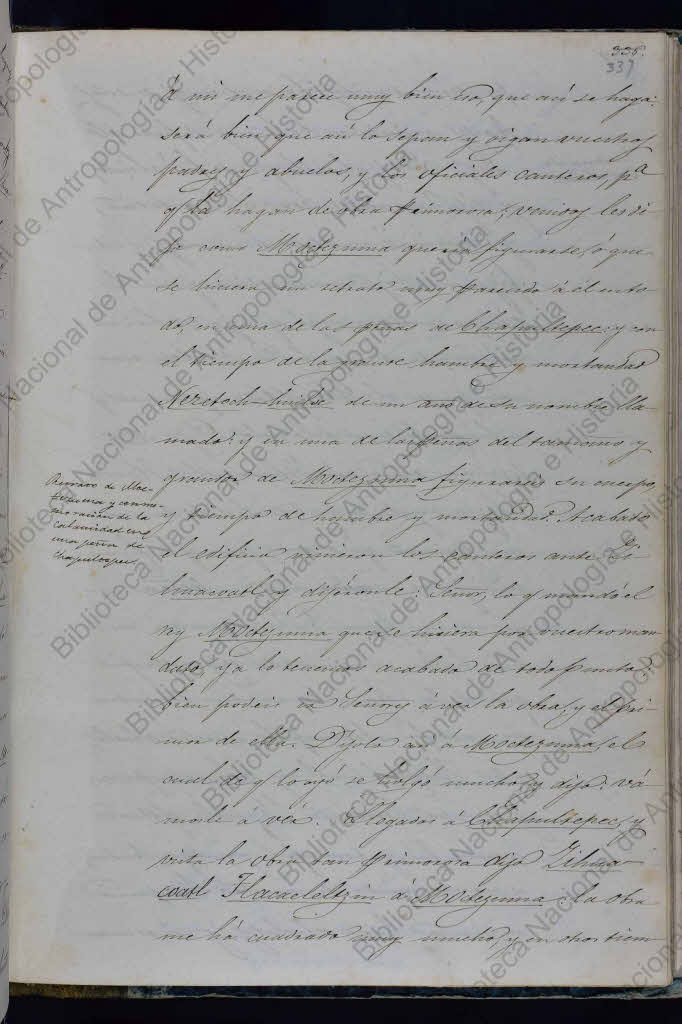 338.
337
A mi me parece muy bien eso, que así se haga:
será bien que así lo sepan y oigan vuestros
padres y abuelos, y los oficiales canteros, pᵃ
q̃ la hagan de obra primorosa; venidos les di-
jo como Moctezuma quería figurarse, ó que
se hiciera un retrato muy parecido á el en to-
do, en una de las peñas de Chapultepec: y con
el tiempo de la grande hambre y mortandad
de un año de su nombre lla-
mado: y en una de las peñas del tamaño y
grandor de Moctezuma figurareis su cuerpo,
y tiempo de hambre y mortandad. Acabado
el edificio vinieron los canteros ante Zi-
huacoatl y dijéronle: Señor, lo q̃ mandó el
rey Moctezuma que se hiciera por vuestro man-
dato, ya lo tenemos acabado de todo punto:
bien podeis ir Señores á ver la obra, y el pri-
mor de ella. Díjolo así á Moctezuma, el
cual de q̃ lo oyó se holgó mucho, y dijo: vá-
mosle á ver. Llegados á Chapultepec, y
vista la obra tan primorosa dijo Zihua-
coatl Tlacaeleltzin á Moctezuma: la obra
me há cuadrado muy mucho, y en otros tiem-
Retrato de Moc-
tezuma y conme-
moracion de la
calamidad en
una peña de
Chapultepec
Biblioteca Nacional de Antropología e Historia